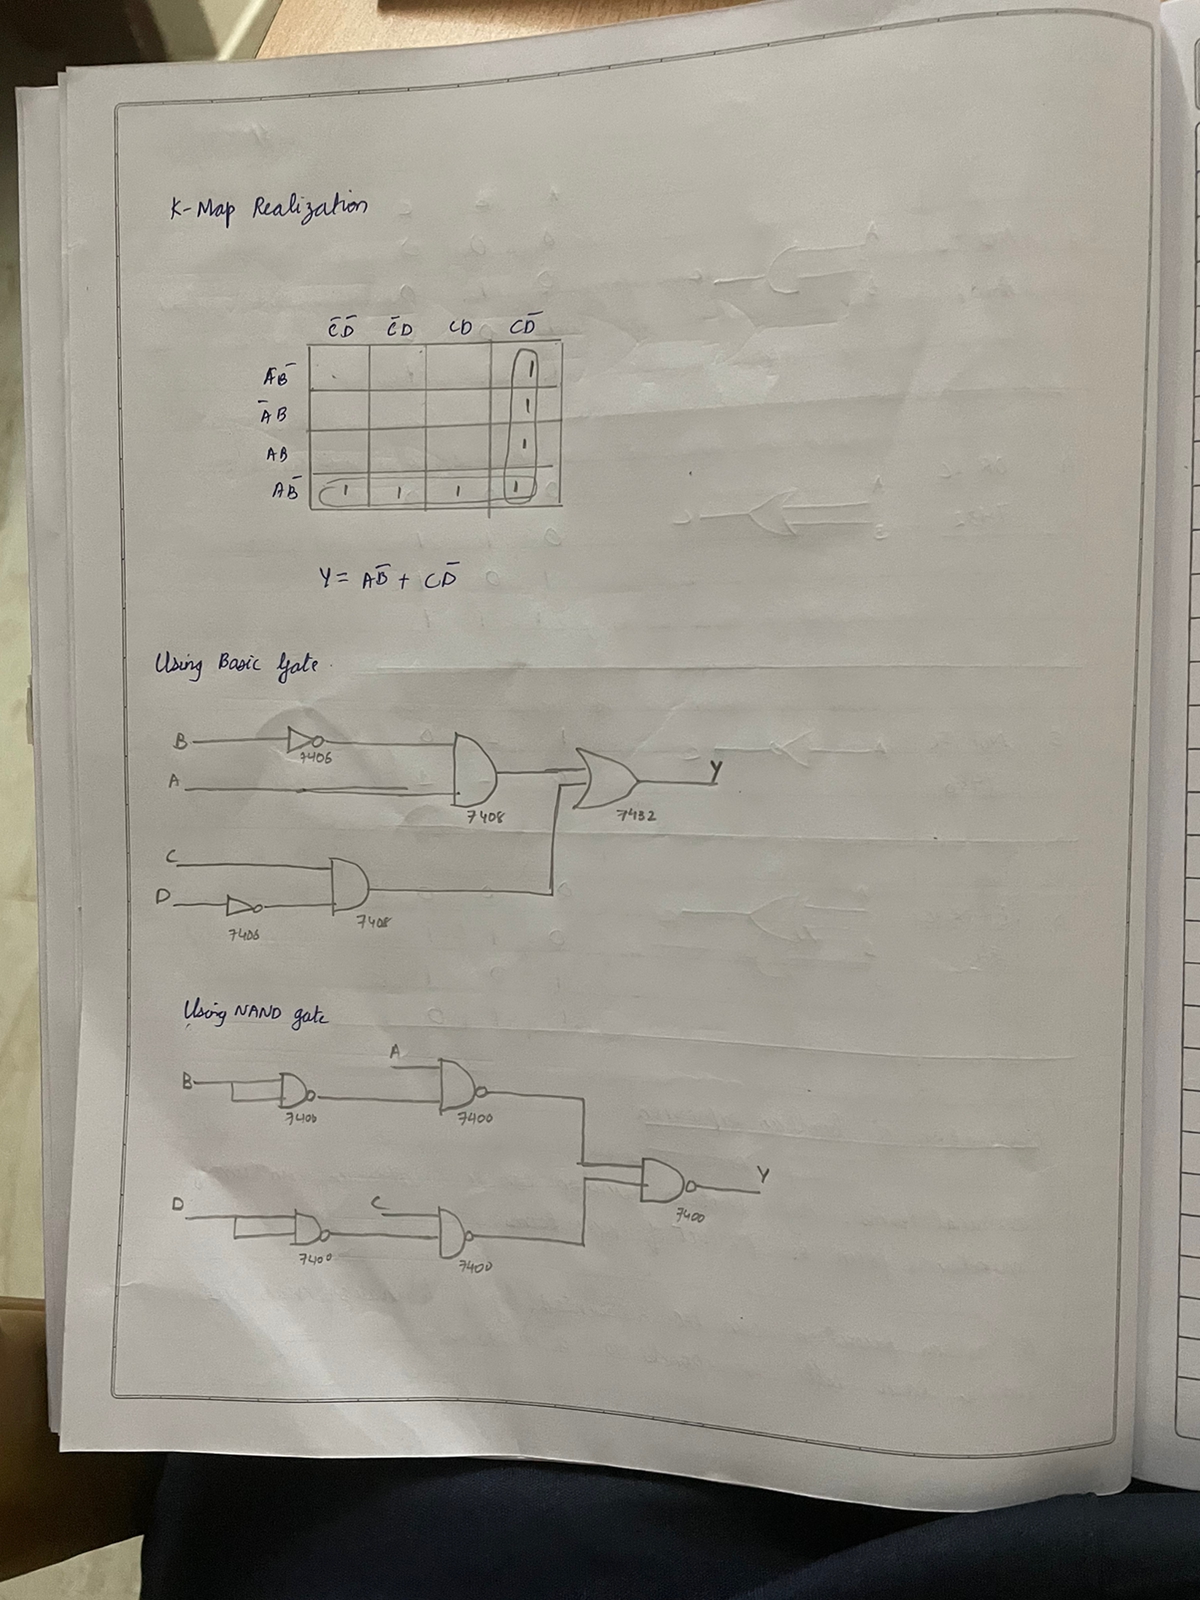 K-Map Realization
C̄D̄ C̄D CD CD̄
ĀB̄ 1
ĀB 1
AB 1
AB̄ 1 1 1 1
Y = AB̄ + CD̄
Using Basic Gate
B 7406
A 7408 7432 Y
C
D 7408
7406
Using NAND gate
A
B 7400 7400
Y
D C 7400
7400 7400